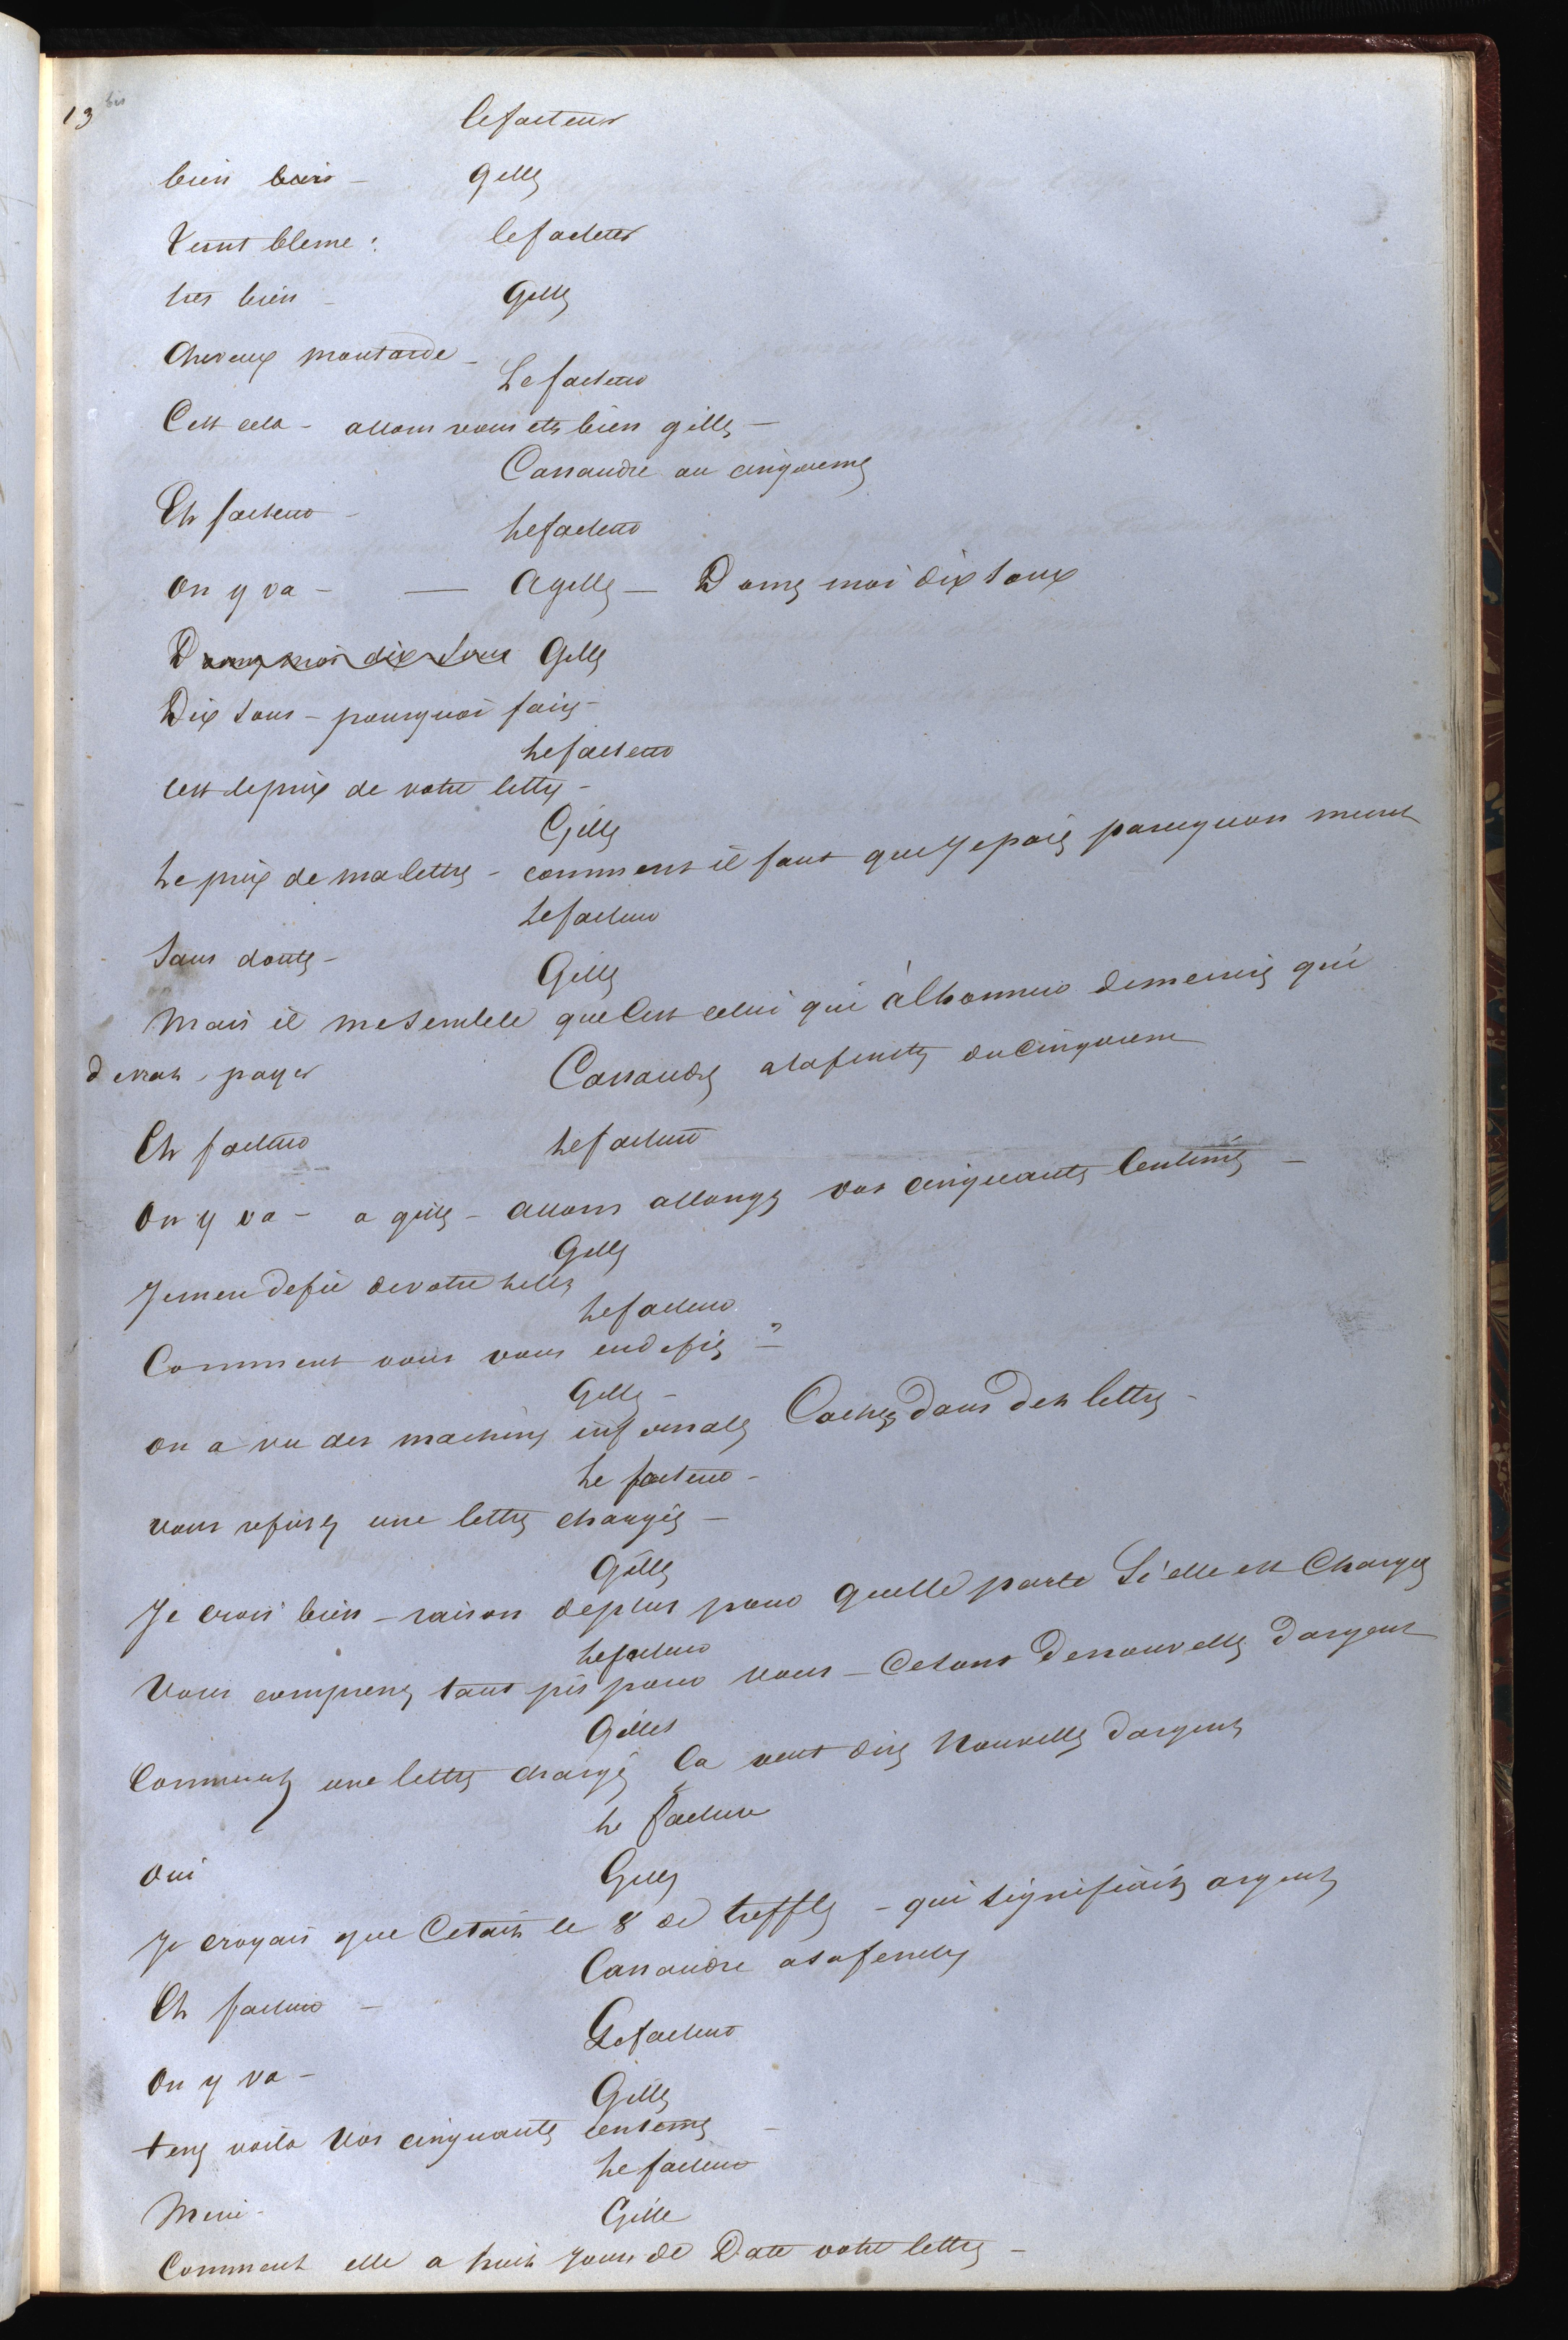 13 bis
le facteur
bien bien –
Gilles
teint bleme :
le facteur
tres bien –
Gilles
Cheveux moutarde –
Le facteur
C'est cela – allons vous etes bien gilles –
Cassandre au cinquieme
Eh facteur –
Le facteur
On y va – — A gilles — Donnez moi dix soux
Donnez moi dix sous Gilles
Dix sous – pourquoi faire –
Le facteur
C'est le prix de votre lettre –
Gilles
Le prix de ma lettre – comment il faut que je paie parcequon mecrit
Le facteur
Sans doute –
Gilles
Mais il me semble que C'est celui qui à lhonneur de mecrire qui
devrait payer
Cassandre a la fenetre du cinquieme
Eh facteur
Le facteur
On y va – a gilles – allons allongez vos cinquante Centimes –
Gilles
Je men defie de votre lettre
Le facteur
Comment vous vous en defiez ? –
Gilles –
on a vu des machines infernales Cachees dans des lettres –
Le facteur –
vous refusez une lettre chargée –
Gilles
Je crois bien – raison de plus pour quelle parte Si elle est Chargee
Le facteur
Vous comprenez tant pis pour vous – Ce sont des nouvelles d'argent
Gilles
Comment une lettre chargée Ca veut dire Nouvelles dargent
Le facteur
Oui
Gilles
Je croyais que Cetait le 8 de treffle – qui signifiait argent
Cassandre a sa fenetre
Eh facteur –
Le facteur
On y va –
Gilles
tenez voila vos cinquante centimes –
Le facteur
Merci –
Gille
Comment elle a huit jours de Date votre lettre –